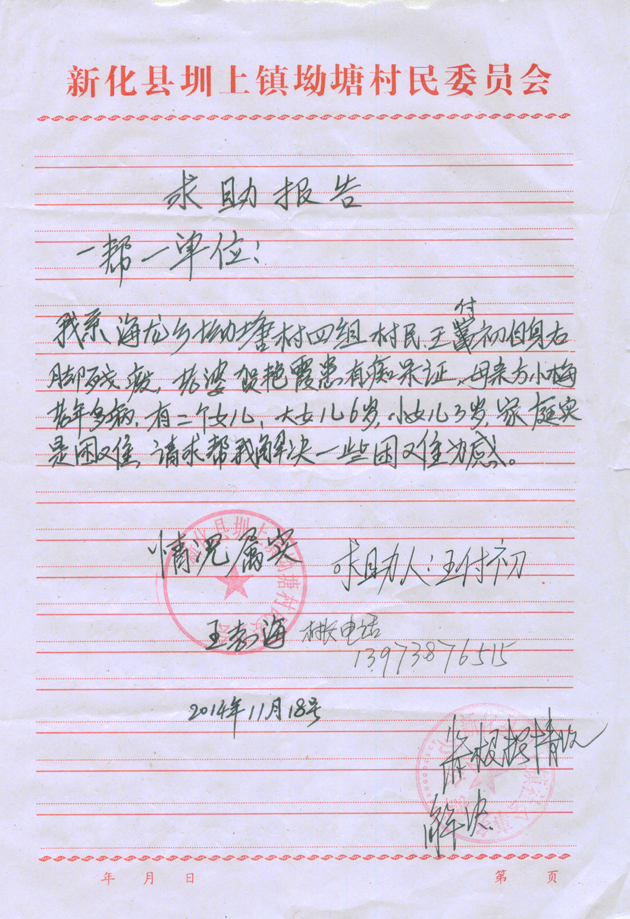 新化县圳上镇坳塘村民委员会
求助报告
一帮一单位：
我系海龙乡坳塘村四组村民王付初自身右
脚残废，老婆贺艳霞患有痴呆证，母亲方小梅
老年多病，有二个女儿，大女儿6岁，小女儿3岁，家庭实
是困难，请求帮我解决一些困难为感。
情况属实
求助人：王付初
王志海 村长电话
13973876515
2014年11月18号
解决
年 月 日 第 页